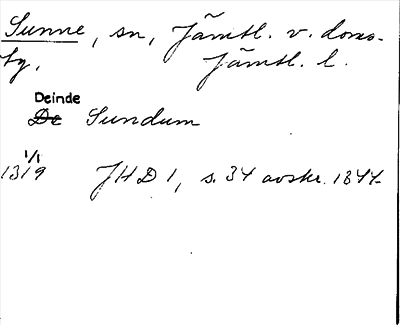 Sunne, sn, Jämtl. v. doms-
by, Jämtl. l.
Deinde
De Sundum
1/1
1319 JHD 1, s. 34 avskr. 1344.